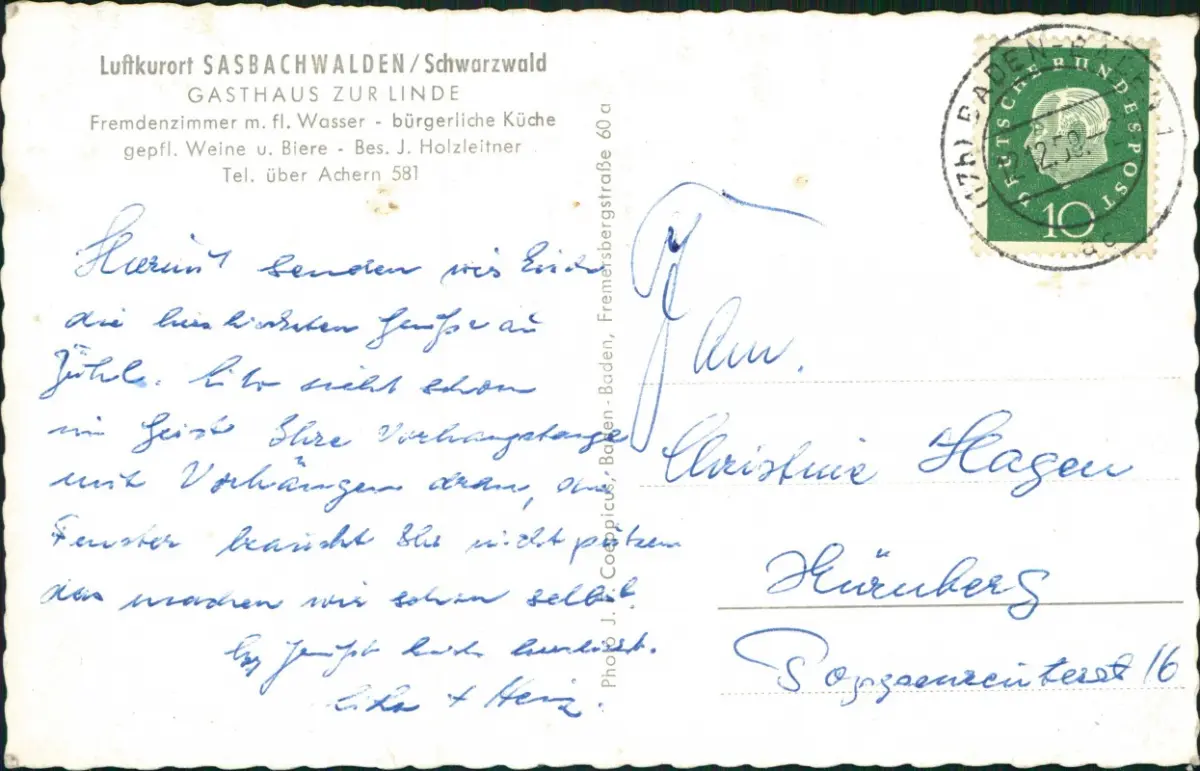 Luftkurort SASBACHWALDEN/Schwarzwald
GASTHAUS ZUR LINDE
Fremdenzimmer m. fl. Wasser - bürgerliche Küche
gepfl. Weine u. Biere - Bes. J. Holzleitner
Tel. über Achern 581
senden wir Euch
die herzlichsten Grüße aus
sieht schon
im Geist Ihre Vorhangstange
mit Vorhängen dran, die
Fenster braucht Ihr nicht putzen
das machen wir schon selbst.
Es grüßt Euch herzlichst.
+ Heinz.
Photo J. Coeppicus, Baden-Baden, Fremersbergstraße 60a
(17b) BADEN-BADEN 1
12.59.
ac
DEUTSCHE BUNDESPOST
10
Fam.
Christine Hagen
Nürnberg
Poppenreuterst 16